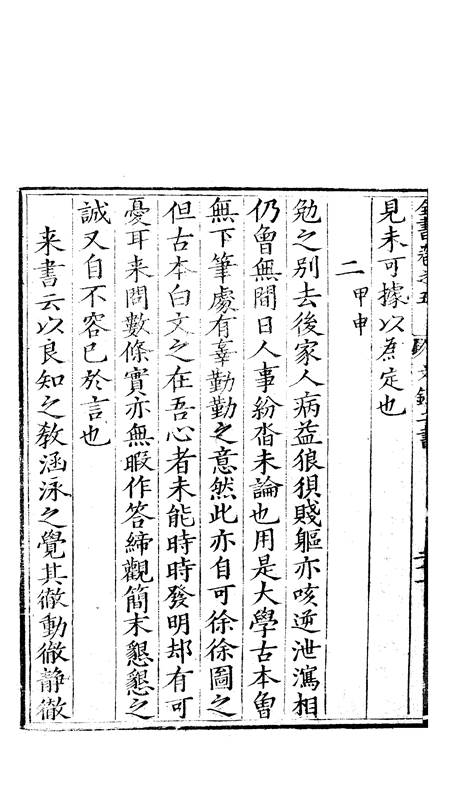 全書卷之五 文錄二書
見未可據以為定也
二 甲申
勉之別去後家人病益狼狽賤軀亦咳逆泄瀉相
仍曾無間日人事紛沓未論也用是大學古本曾
無下筆處有辜勤勤之意然此亦自可徐徐圖之
但古本白文之在吾心者未能時時發明却有可
憂耳來問數條實亦無暇作答締觀簡末懇懇之
誠又自不容已於言也
來書云以良知之教涵泳之覺其徹動徹靜徹